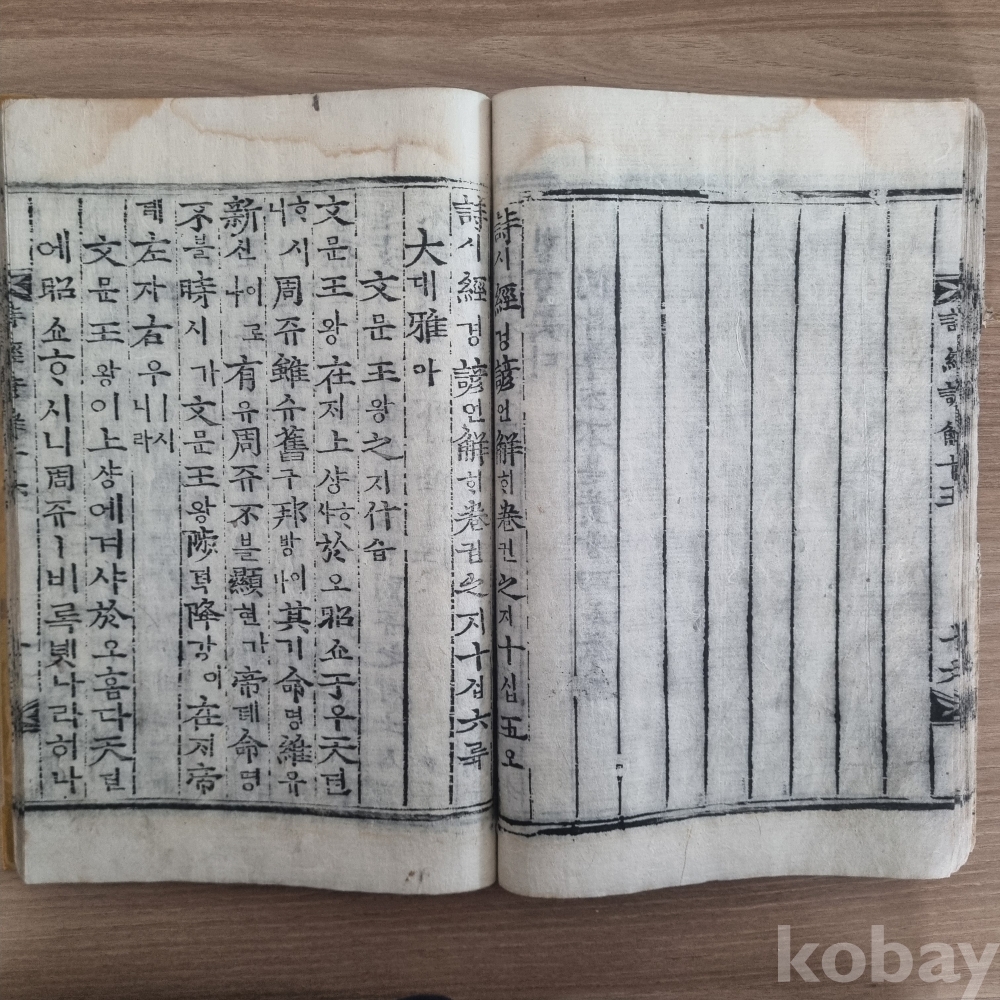 詩經諺解十五
詩시經경諺언解ᄒᆡ卷권之지十십五오
詩시經경諺언解ᄒᆡ卷권之지十십六륙
大대雅아
文문王왕之지什습
文문王왕在ᄌᆡ上샹ᄒᆞ샤於오昭쇼于우天텬
ᄒᆞ시니周쥬雖슈舊구邦방이나其기命명維유
新신이로다有유周쥬不블顯현가帝뎨命명
不블時시가文문王왕陟텩降강이在ᄌᆡ帝
뎨左자右우ㅣ시니라
文문王왕이上샹에겨샤於오홉다天텬
에昭쇼ᄒᆞ시니周쥬ㅣ비록녯나라히나
詩經諺解十六
kobay